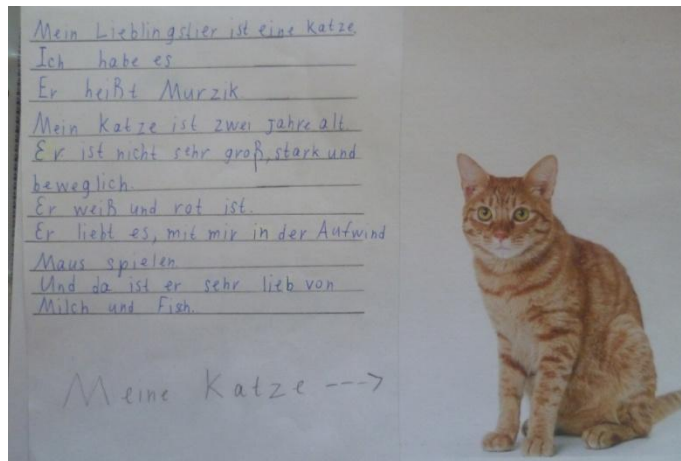 Mein Lieblingstier ist eine Katze.
Ich habe es
Er heißt Murzik
Mein Katze ist zwei jahre alt
Er ist nicht sehr groß, stark und
beweglich.
Er weiß und rot ist.
Er liebt es, mit mir in der Aufwind
Maus spielen
Und da ist er sehr lieb von
Milch und Fish.
Meine Katze --->